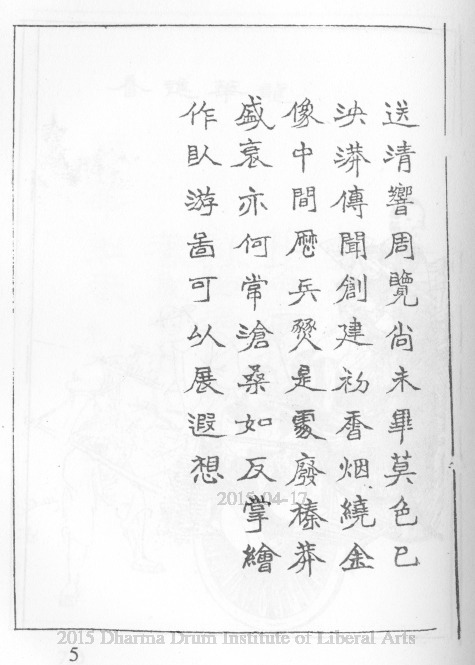 送清響周覽尚未畢莫色已
泱漭傳聞創建初香烟繞金
像中間歷兵燹是處廢榛莽
盛衰亦何常滄桑如反掌繪
作臥游啚可以展遐想
2015-04-17
2015 Dharma Drum Institute of Liberal Arts
5